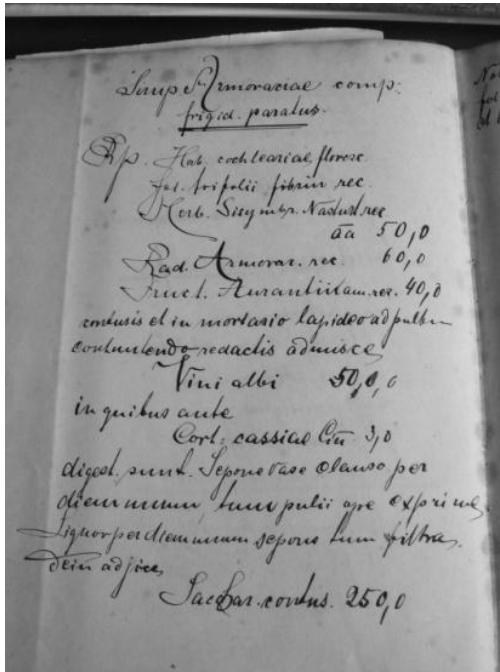 Sirup Armoraciae comp.
frigid. paratus.
Rp. Herb. cochleariae floresc.
fol. trifolii fibrin rec.
Herb. Sisymbr. Nasturt rec
āā 50,0
Rad. Armorac. rec. 60,0
Fruct. Aurantii am. rec. 40,0
contusis et in mortario lapideo ad pultem
contundendo redactis admisce
Vini albi 50,0,0
in quibus ante
Cort. cassiae Cin 3,0
digest. sunt. Sepone vase clauso per
diem unum, tum
exprime
Liquor per diem unum sepone tum filtra.
Dein adjice
Sacchar. contus. 250,0